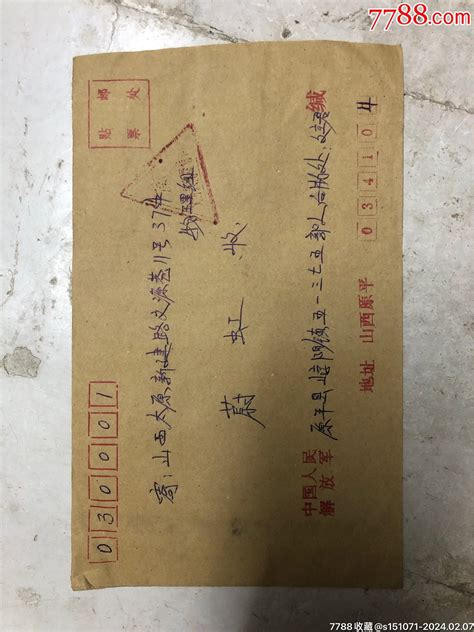 7788.com
贴邮
票处
030001
寄：山西太原新建路文源巷11号37#
物理组
蔚虹 收
中国人民
解放军
原平县崞阳镇五一三七五部队
缄
地址 山西原平
034104
7788收藏@s151071-2024.02.07